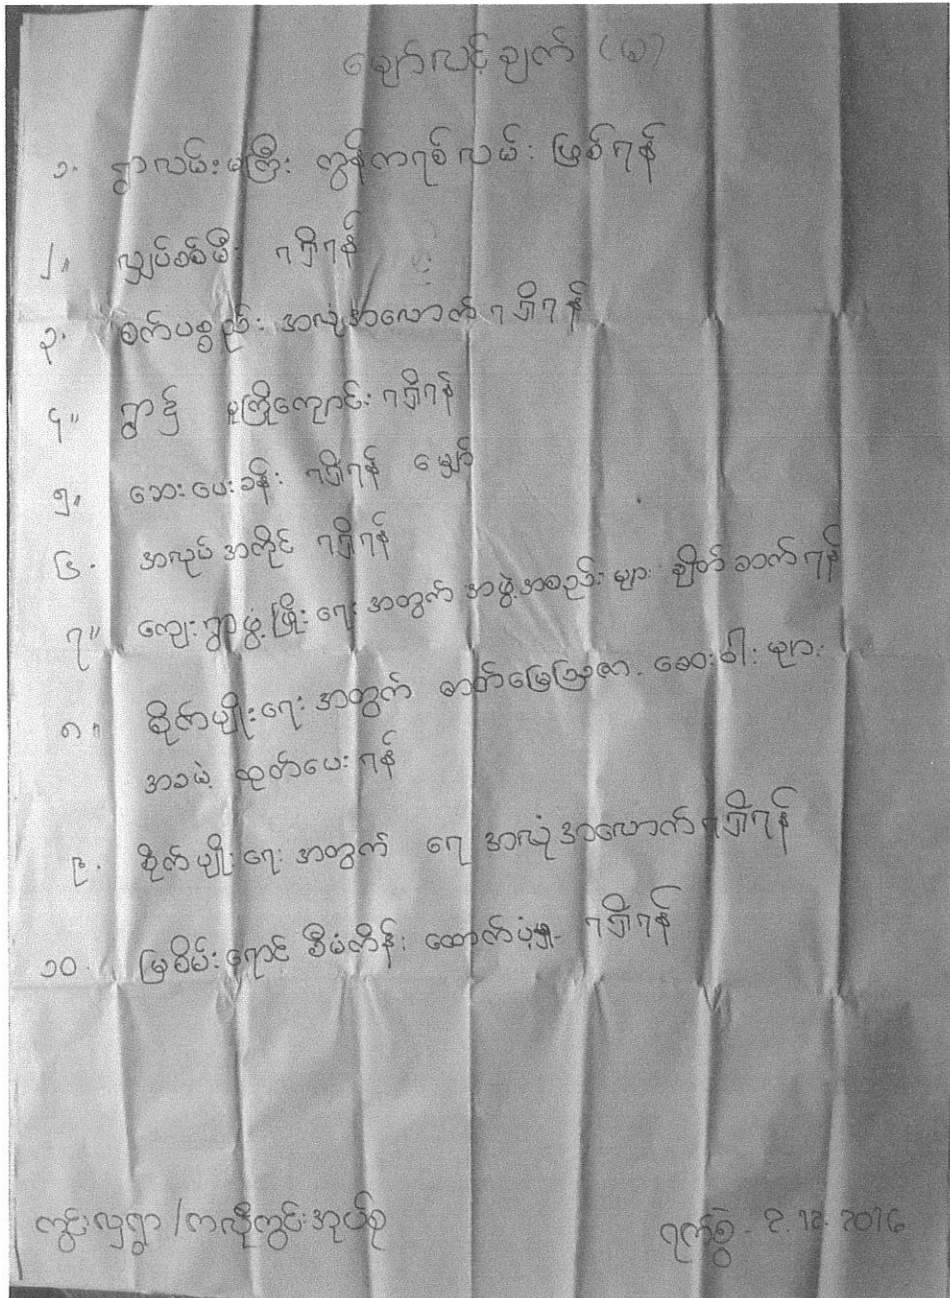 မျှော်လင့်ချက် (၆)
၁. ရွာလမ်းမကြီး ကွန်ကရစ်လမ်း ဖြစ်ရန်
၂။ လျှပ်စစ်မီး ရရှိရန်
၃. စက်ပစ္စည်း အလုံအလောက် ရရှိရန်
၄။ ရွာ၌ မူကြိုကျောင်း ရရှိရန်
၅။ ဆေးပေးခန်း ရရှိရန် မျှော်
၆. အလုပ်အကိုင် ရရှိရန်
၇။ ကျေးရွာဖွံ့ဖြိုးရေး အတွက် အဖွဲ့အစည်းများ ချိတ်ဆက်ရန်
၈။ စိုက်ပျိုးရေး အတွက် ဓာတ်မြေဩဇာ. ဆေးဝါးများ
အခမဲ့ ထုတ်ပေးရန်
၉. စိုက်ပျိုးရေး အတွက် ရေ အလုံအလောက် ရရှိရန်
၁၀. မြစိမ်းရောင် စီမံကိန်း ထောက်ပံ့မှု ရရှိရန်
ကွင်းလှရွာ / ကလိုကွင်းအုပ်စု
ရက်စွဲ - 2.12.2016